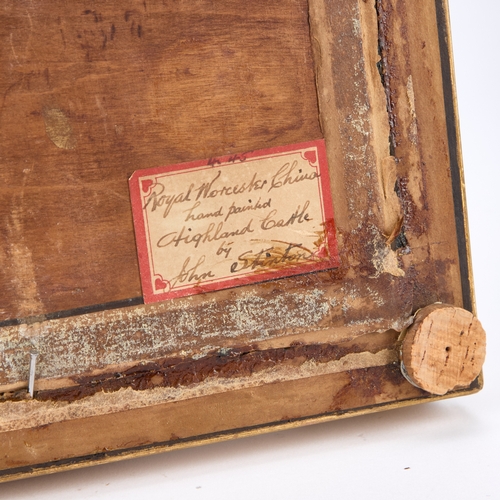 Royal Worcester China
hand painted
Highland Cattle
by
John